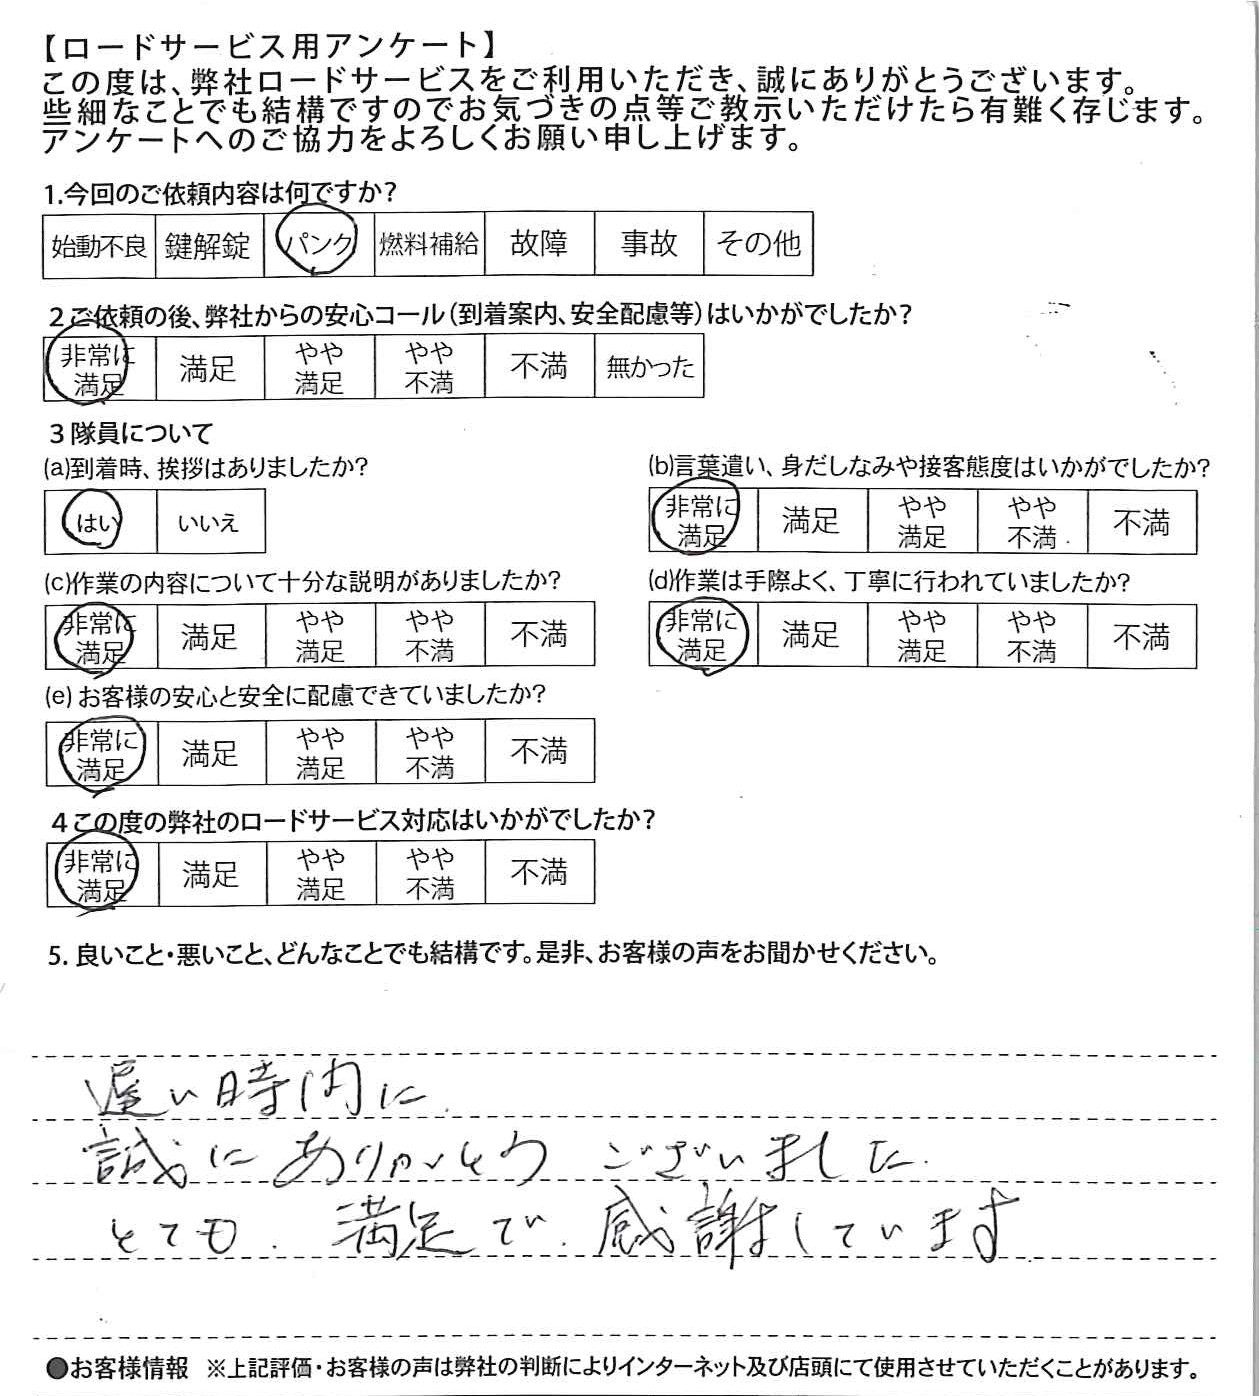 【ロードサービス用アンケート】
この度は、弊社ロードサービスをご利用いただき、誠にありがとうございます。
些細なことでも結構ですのでお気づきの点等ご教示いただけたら有難く存じます。
アンケートへのご協力をよろしくお願い申し上げます。
1.今回のご依頼内容は何ですか?
始動不良 鍵解錠 パンク 燃料補給 故障 事故 その他
2ご依頼の後、弊社からの安心コール(到着案内、安全配慮等)はいかがでしたか?
非常に満足 満足 やや満足 やや不満 不満 無かった
3隊員について
(a)到着時、挨拶はありましたか?
はい いいえ
(b)言葉遣い、身だしなみや接客態度はいかがでしたか?
非常に満足 満足 やや満足 やや不満 不満
(c)作業の内容について十分な説明がありましたか?
非常に満足 満足 やや満足 やや不満 不満
(d)作業は手際よく、丁寧に行われていましたか?
非常に満足 満足 やや満足 やや不満 不満
(e)お客様の安心と安全に配慮できていましたか?
非常に満足 満足 やや満足 やや不満 不満
4この度の弊社のロードサービス対応はいかがでしたか?
非常に満足 満足 やや満足 やや不満 不満
5. 良いこと・悪いこと、どんなことでも結構です。是非、お客様の声をお聞かせください。
遅い時間に
誠にありがとう ございました.
とても. 満足で. 感謝しています
●お客様情報 ※上記評価・お客様の声は弊社の判断によりインターネット及び店頭にて使用させていただくことがあります。